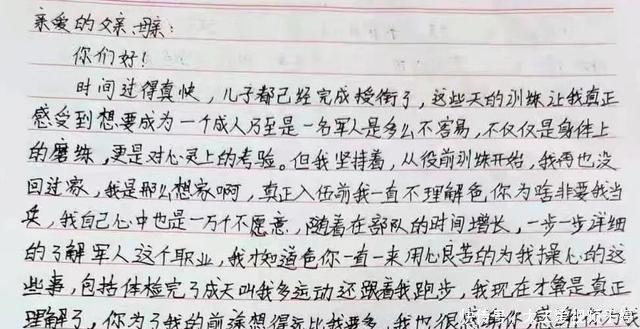 亲爱的父亲、母亲：
你们好！
时间过得真快，儿子都已经完成授衔了，这些天的训练让我真正
感受到想要成为一个成人乃至是一名军人是多么不容易，不仅仅是身体上
的磨练，更是对心灵上的考验。但我坚持着，从役前训练开始，我再也没
回过家，我是那么想家啊，真正入伍前我一直不理解爸你为啥非要我当
兵，我自己心中也是一万个不愿意，随着在部队的时间增长，一步一步详细
的了解军人这个职业，我才知道爸你一直一来用心良苦的为我操心的这
些事，包括体检完了成天叫我多运动还跟着我跑步，我现在才算是真正
理解了，你为了我的前途想得远比我要多，我也很